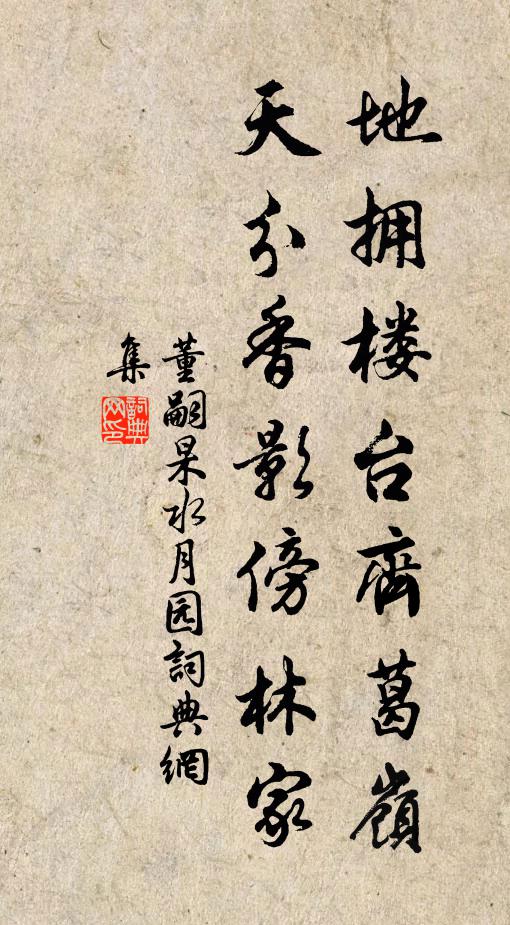 地拥楼台齊葛嶺
天分香影傍林家
董嗣杲水月园詞典網
集
詞典
网印